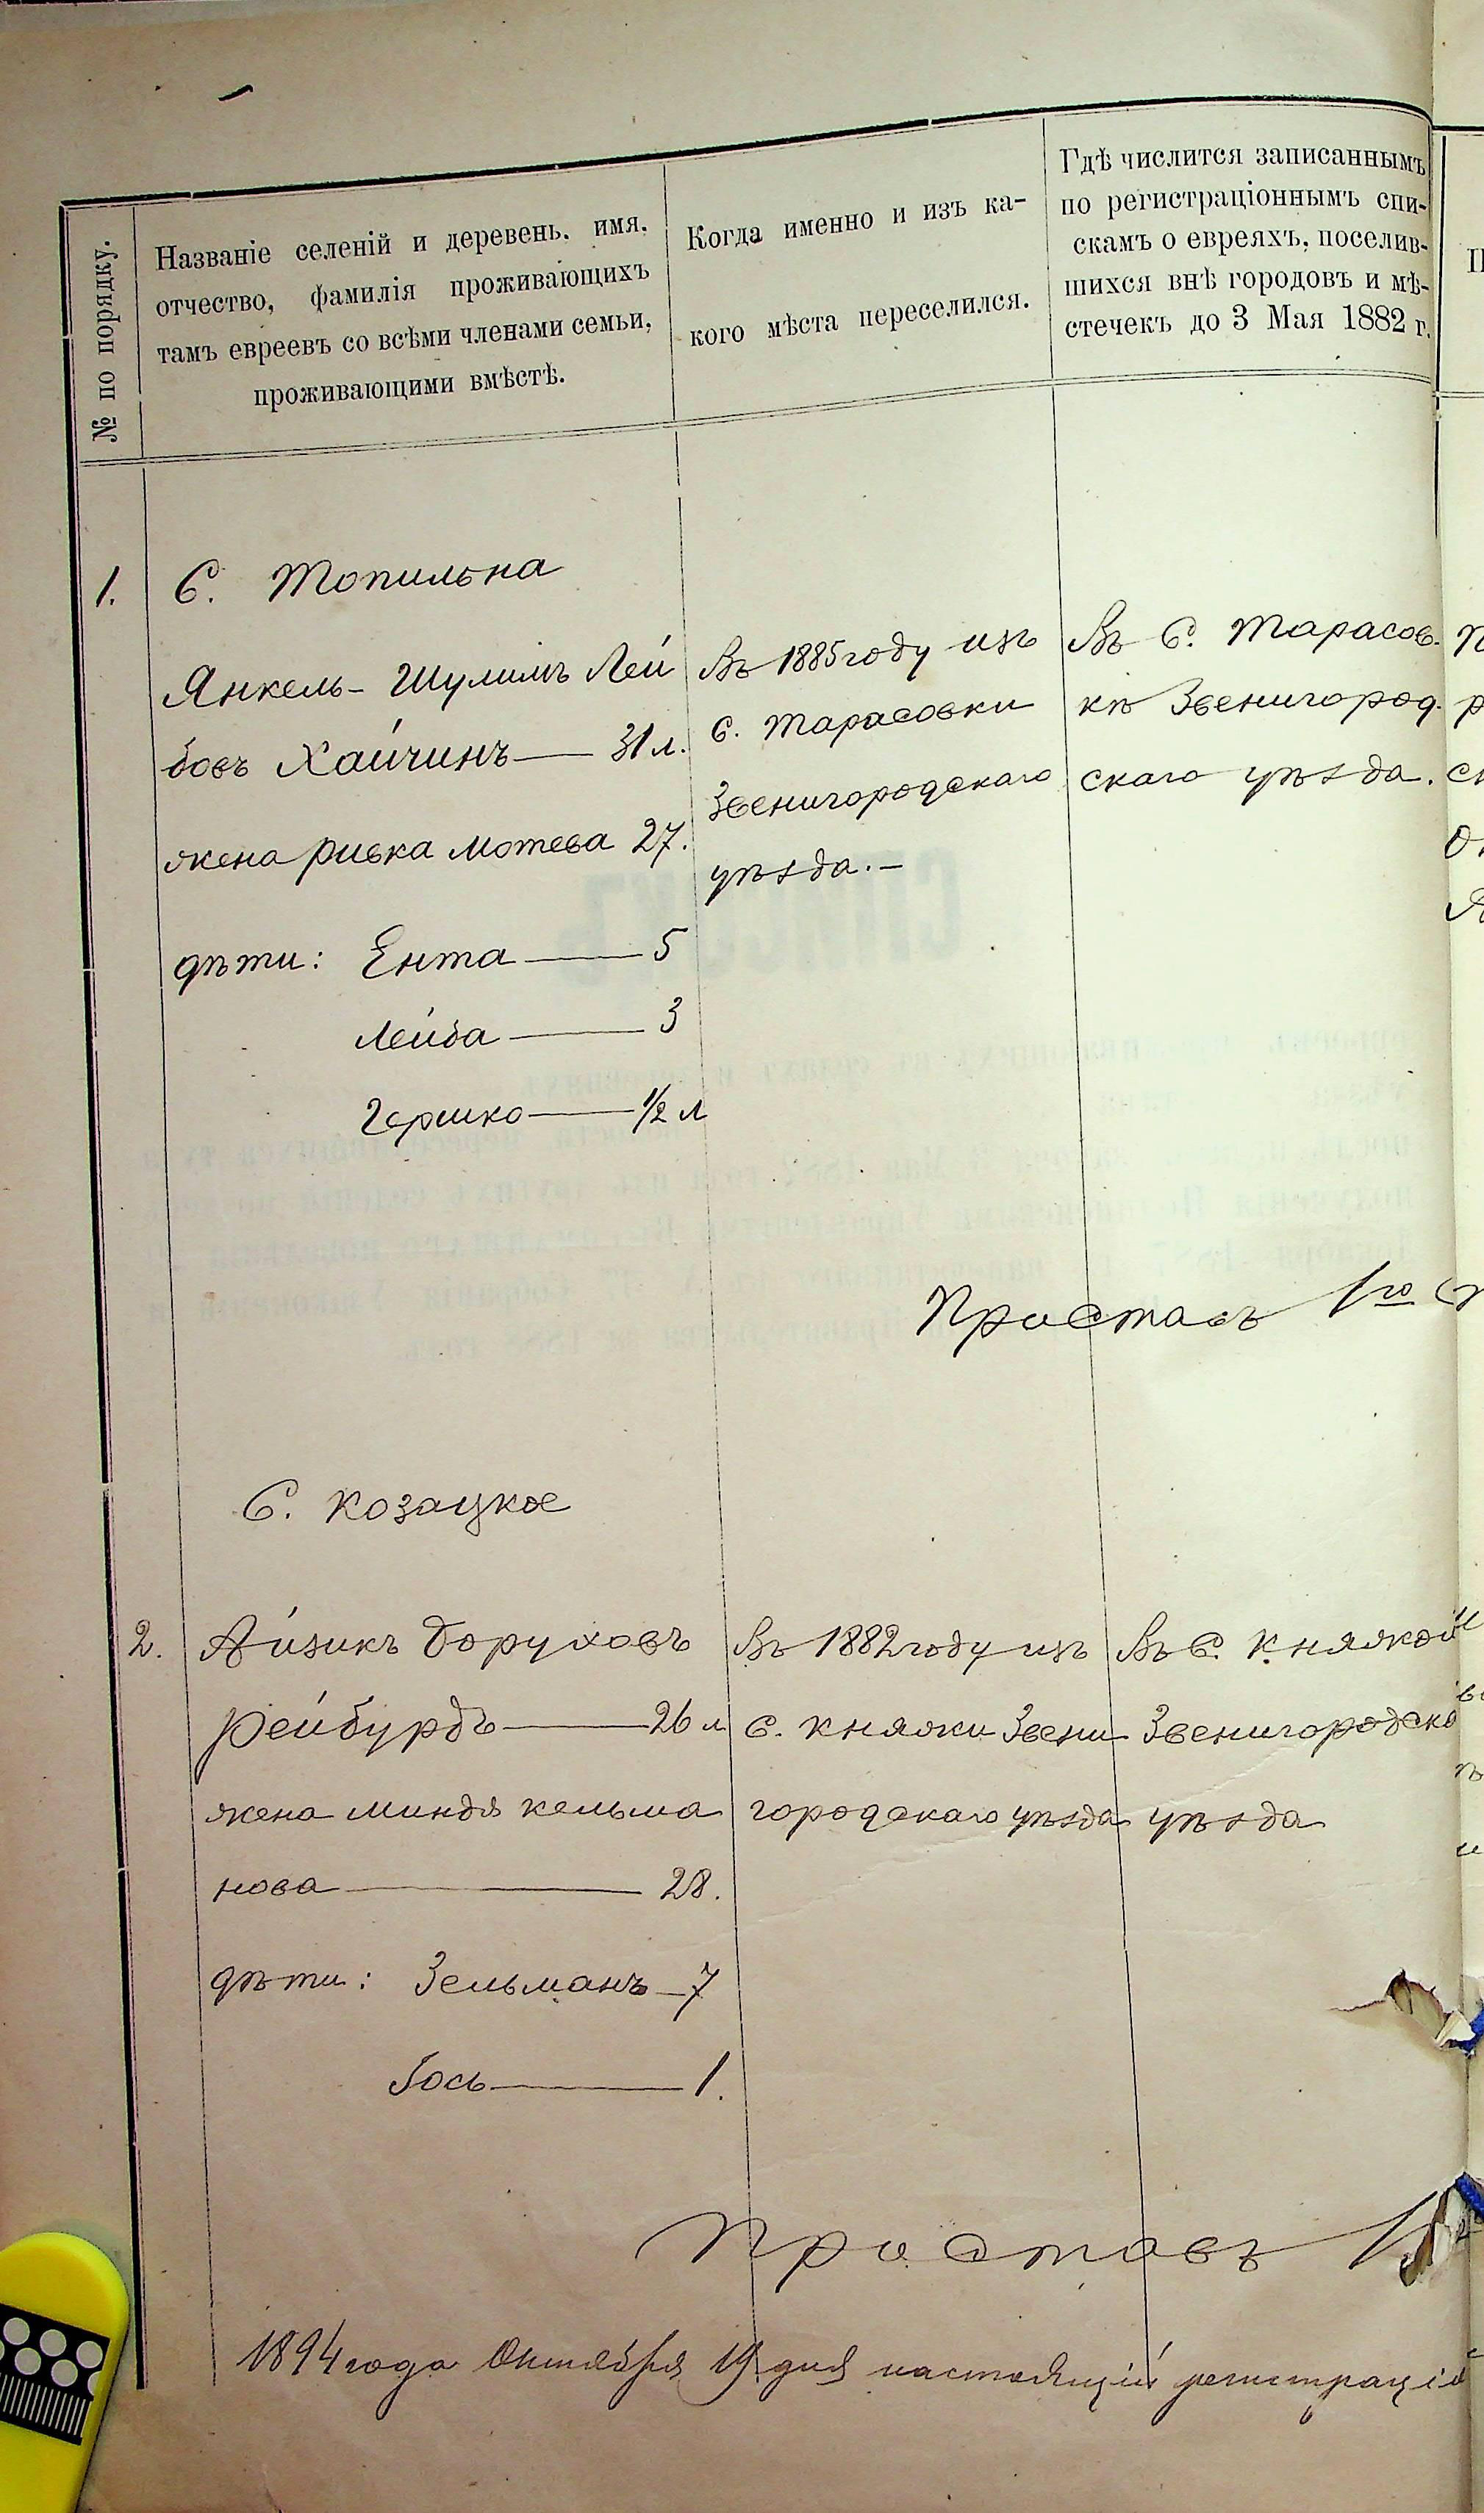 № по порядку.
Названіе селеній и деревень, имя,
отчество, фамилія проживающихъ
тамъ евреевъ со всѣми членами семьи,
проживающими вмѣстѣ.
Когда именно и изъ ка-
кого мѣста переселился.
Гдѣ числится записаннымъ
по регистраціоннымъ спи-
скамъ о евреяхъ, поселив-
шихся внѣ городовъ и мѣ-
стечекъ до 3 Мая 1882 г.
1.
С. Топильна
Янкель-Шулимъ Лей
бовъ Хайчинъ — 31 л.
жена Ривка Мотева 27.
дѣти: Ента — 5
Лейба — 3
Гершко — 1/2 л
Въ 1885 году изъ
с. Тарасовки
Звенигородскаго
уѣзда.—
Въ С. Тарасов-
кѣ Звенигород-
скаго уѣзда.
Приставъ 1го
С. Козацкое
2.
Айзикъ Боруховъ
Рейбурдъ — 26 л
жена Миндя Кельма
нова — 28.
дѣти: Зельманъ — 7
Іось — 1.
Въ 1882 году изъ
с. Княжки Звени
городскаго уѣзда
Въ С. Княжкой
Звенигородска
уѣзда
Приставъ 1
1894 года Октября 19 дня настоящій регистраціо